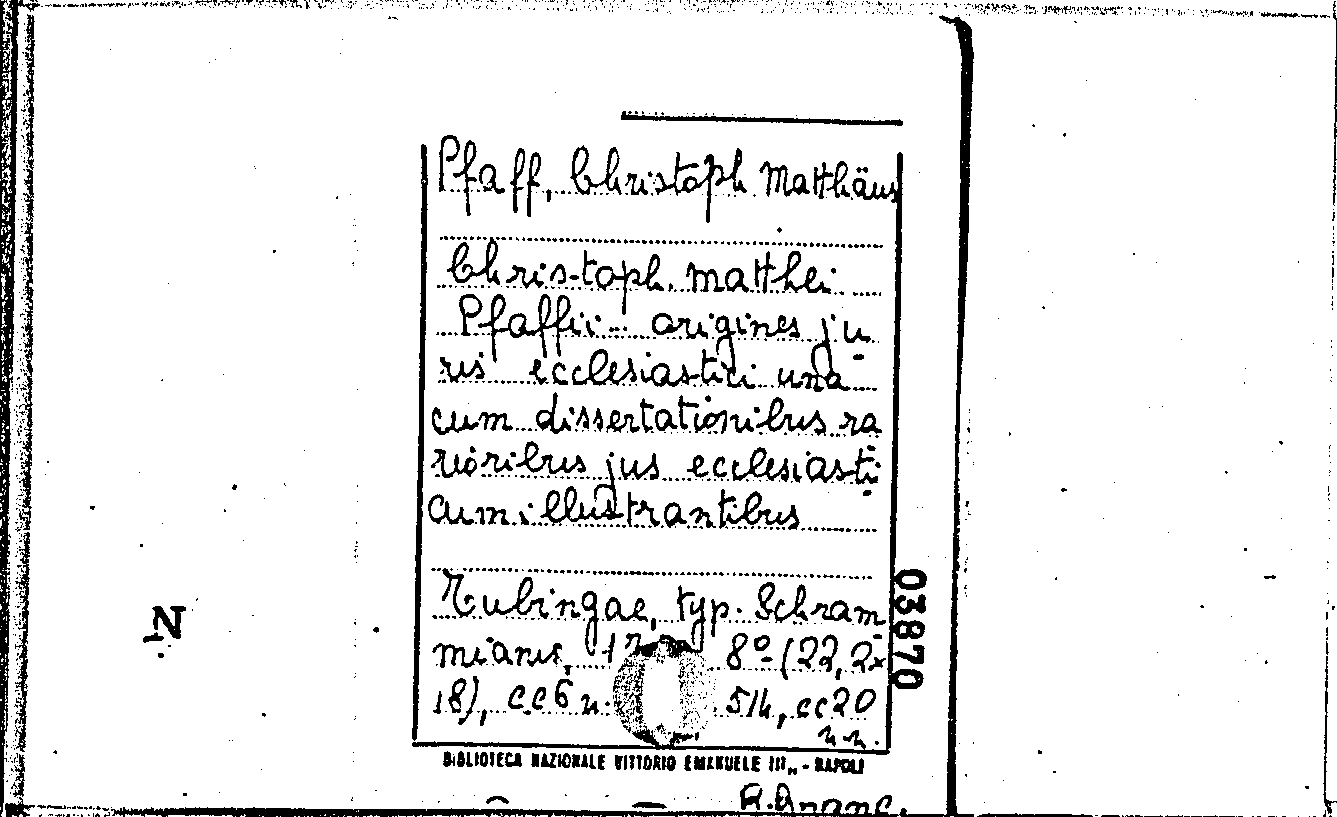 Pfaff, Christoph Matthäus
Christoph. Matthei
Pfaffii... origines ju
ris ecclesiastici una
cum dissertationibus ra
rioribus jus ecclesiasti
cum illustrantibus
Tubingae, typ. Schram
mianis, 8º (22,2x
18), cc6 n. 514, cc20
n.n.
BIBLIOTECA NAZIONALE VITTORIO EMANUELE III„ - NAPOLI
03870
N